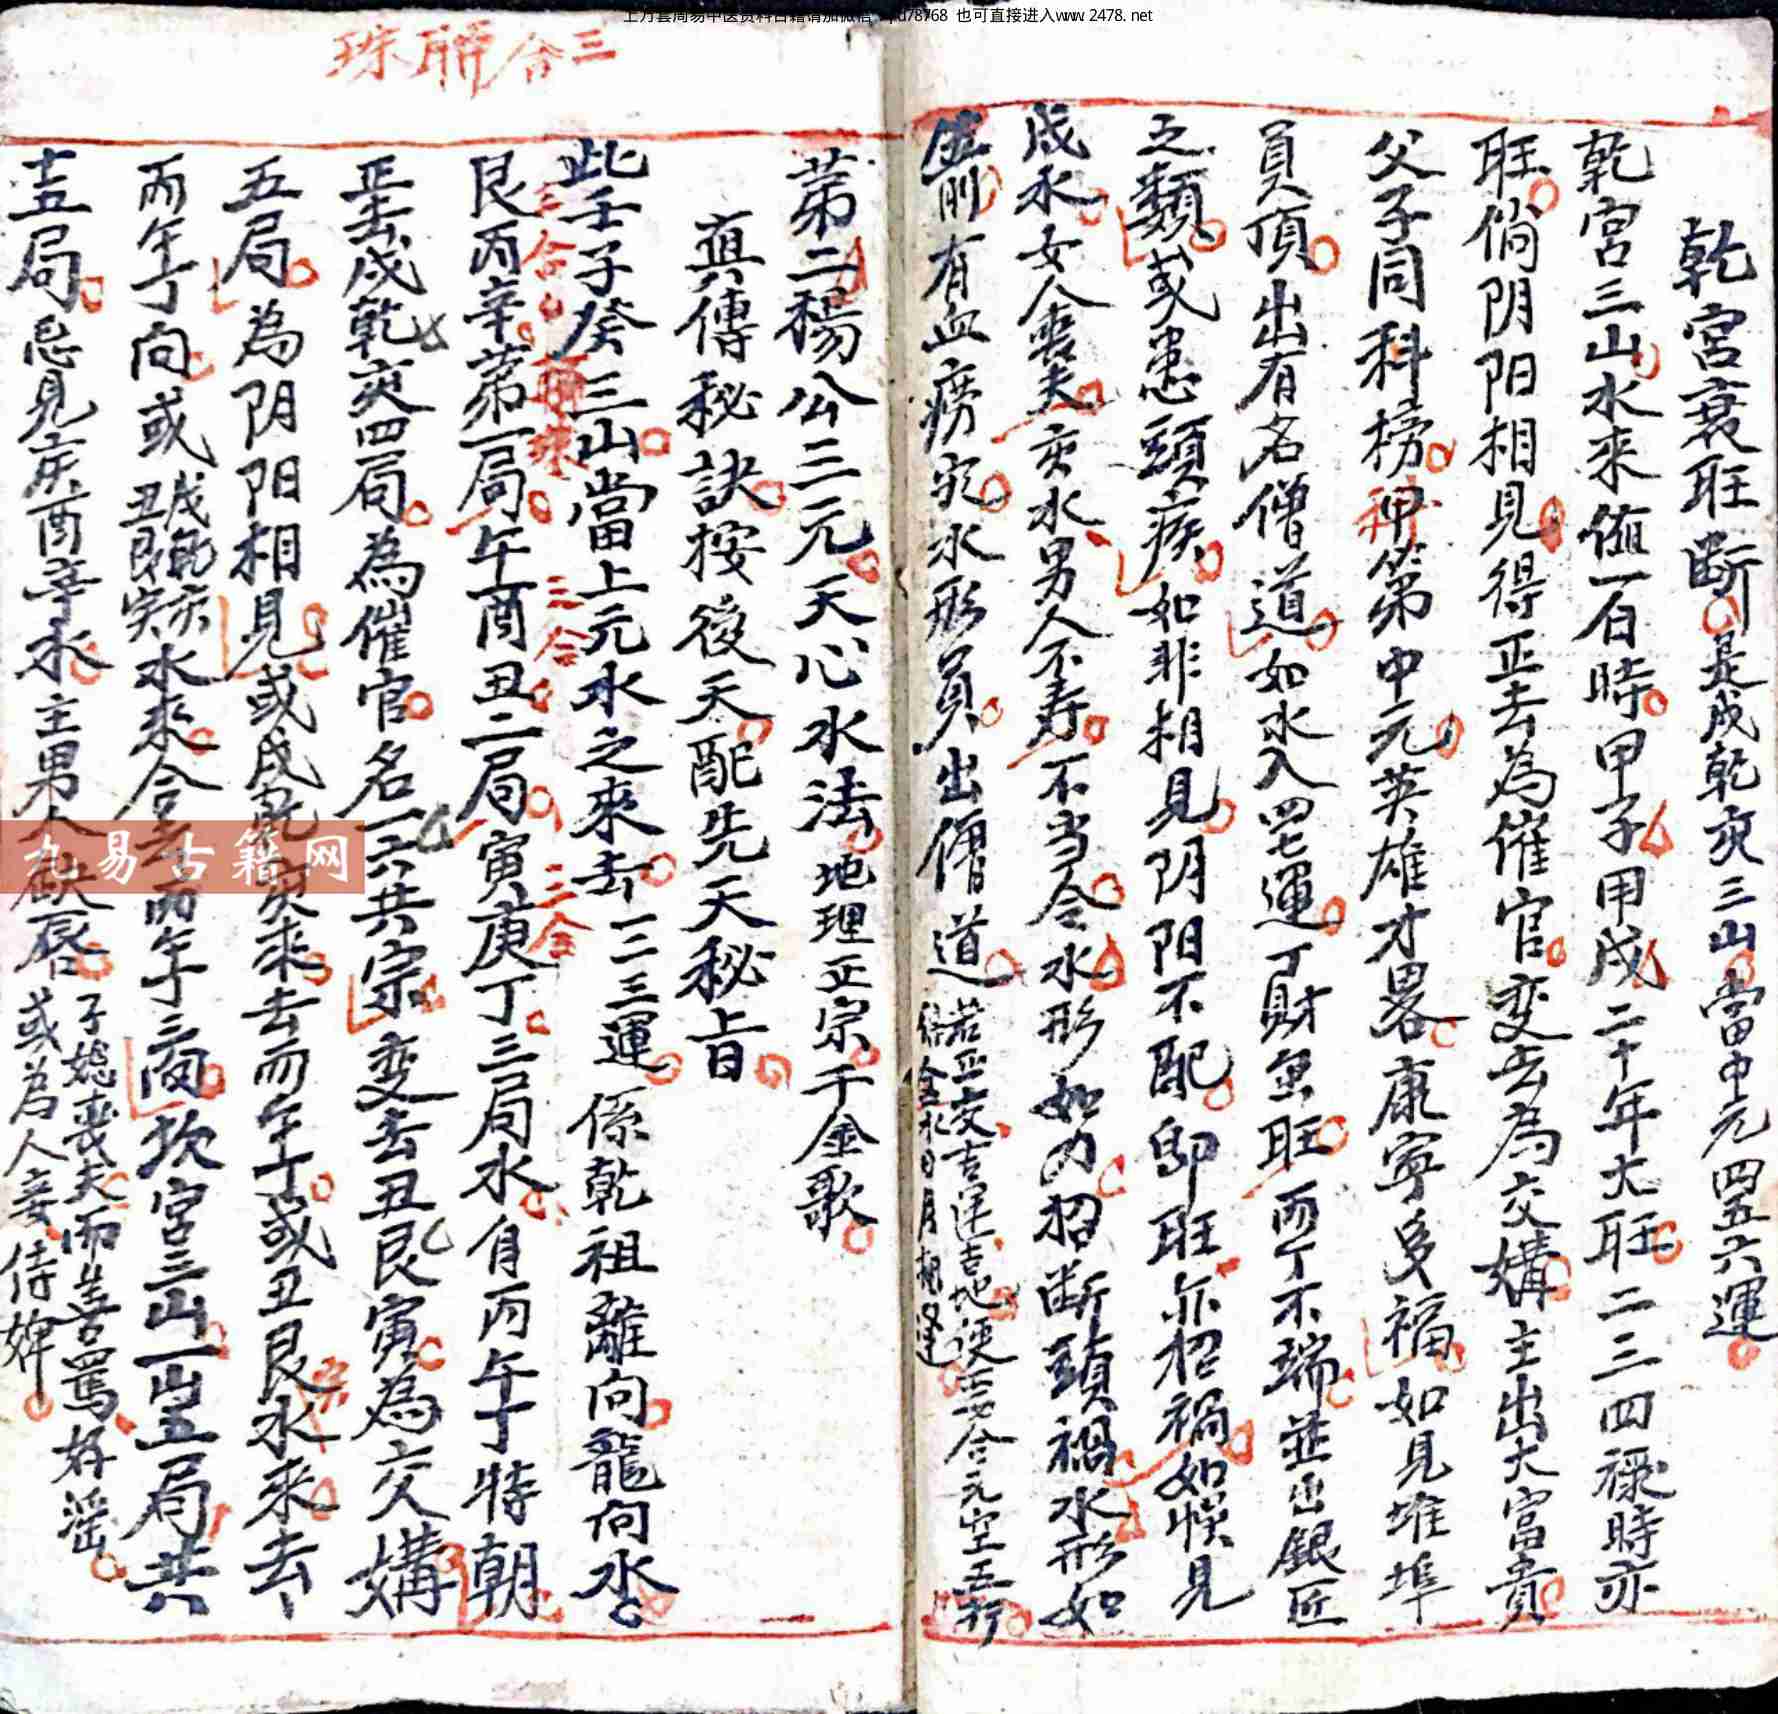 乾宮衰旺斷是戌乾亥三山當中元四五六運
乾宮三山水來值一百時甲子甲戌二十年大旺二三四祿時亦
旺倘阴阳相見得正去為催官变去為交媾主出大富貴
父子同科榜甲第中元英雄才畧康寧多福如見堆埠
員頂出有名僧道如水入四七運丁財旺丙丁不瑞並出銀匠
之類或患頭疾如非相見阴阳不配即旺亦招禍如恨見
戌水女人喪夫亥水男人不寿不当令水形如刀招断頭禍水形如
有血癆水形員出僧道
若正交吉運吉地便合元空五行
三合聯珠
第二楊公三元天心水法地理正宗千金歌
真傳秘訣按後天配先天秘旨
此壬子癸三山當上元水之來去一二三運係乾祖離向龍向水
艮丙辛第一局午酉丑二局寅庚丁三局水自丙午丁特朝
三合
聯珠
三合
三合
正去戌乾亥四局為催官名一六共宗变去丑艮寅為交媾
五局為阴阳相見或戌乾亥來去而午丁或丑艮水來去
丙午丁向或
戌乾亥
丑艮寅
水來合去丙午丁三向坎宮三山一山五局共
十五局忌見庚酉辛水主男人缺唇
子媳喪夫而善罵好淫
或為人妾侍婢
九易古籍网
也可直接进入www.2478.net